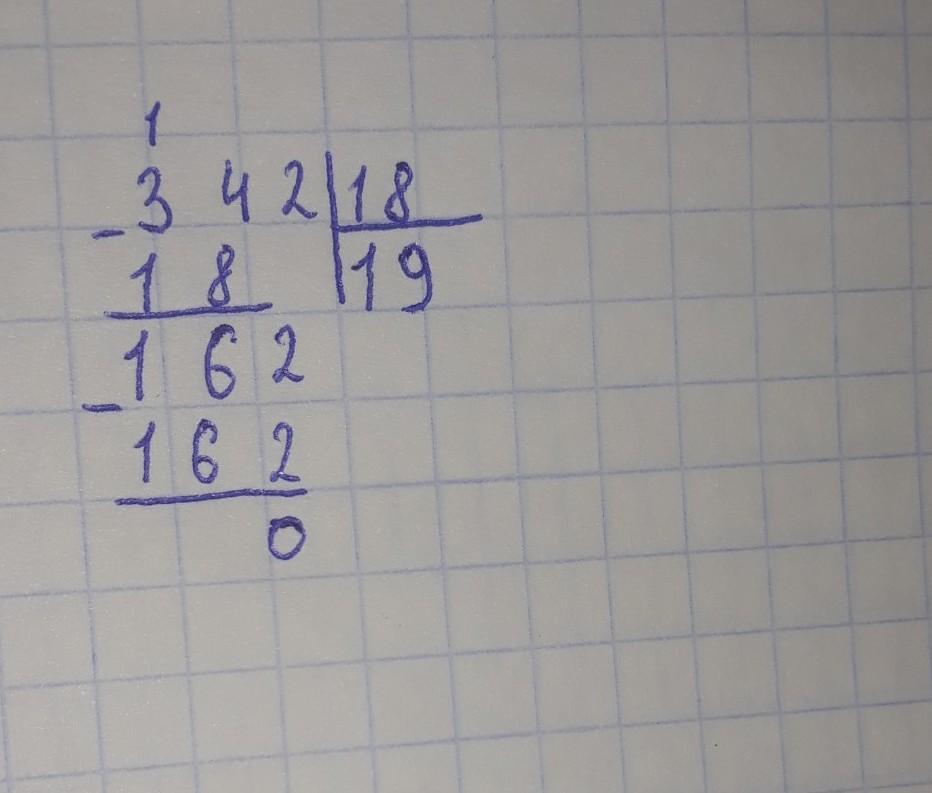 1
- 3 4 2 | 18
1 8 | 19
- 1 6 2
1 6 2
0